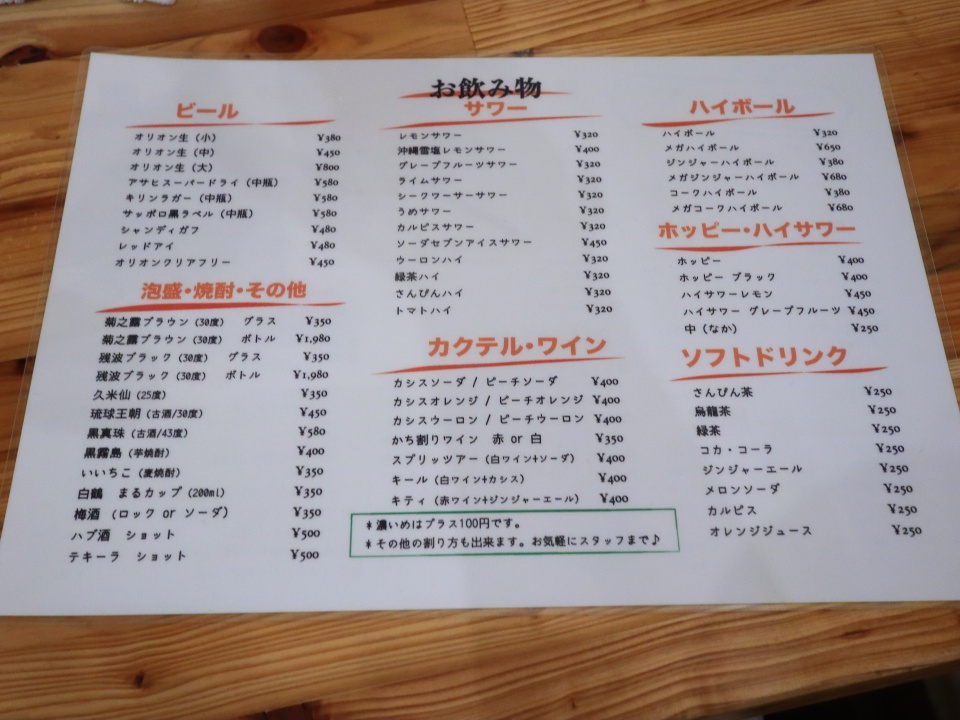 お飲み物
ビール
オリオン生（小） ¥380
オリオン生（中） ¥450
オリオン生（大） ¥800
アサヒスーパードライ（中瓶） ¥580
キリンラガー（中瓶） ¥580
サッポロ黒ラベル（中瓶） ¥580
シャンディガフ ¥480
レッドアイ ¥480
オリオンクリアフリー ¥450
泡盛・焼酎・その他
菊之露ブラウン（30度） グラス ¥350
菊之露ブラウン（30度） ボトル ¥1,980
残波ブラック（30度） グラス ¥350
残波ブラック（30度） ボトル ¥1,980
久米仙（25度） ¥350
琉球王朝（古酒/30度） ¥450
黒真珠（古酒/43度） ¥580
黒霧島（芋焼酎） ¥400
いいちこ（麦焼酎） ¥350
白鶴 まるカップ（200ml） ¥350
梅酒 （ロック or ソーダ） ¥350
ハブ酒 ショット ¥500
テキーラ ショット ¥500
サワー
レモンサワー ¥320
沖縄雪塩レモンサワー ¥400
グレープフルーツサワー ¥320
ライムサワー ¥320
シークワーサーサワー ¥320
うめサワー ¥320
カルピスサワー ¥320
ソーダセブンアイスサワー ¥450
ウーロンハイ ¥320
緑茶ハイ ¥320
さんぴんハイ ¥320
トマトハイ ¥320
カクテル・ワイン
カシスソーダ / ピーチソーダ ¥400
カシスオレンジ / ピーチオレンジ ¥400
カシスウーロン / ピーチウーロン ¥400
かち割りワイン 赤 or 白 ¥350
スプリッツアー（白ワイン+ソーダ） ¥400
キール（白ワイン+カシス） ¥400
キティ（赤ワイン+ジンジャーエール） ¥400
＊濃いめはプラス100円です。
＊その他の割り方も出来ます。お気軽にスタッフまで♪
ハイボール
ハイボール ¥320
メガハイボール ¥650
ジンジャーハイボール ¥380
メガジンジャーハイボール ¥680
コークハイボール ¥380
メガコークハイボール ¥680
ホッピー・ハイサワー
ホッピー ¥400
ホッピー ブラック ¥400
ハイサワーレモン ¥450
ハイサワー グレープフルーツ ¥450
中（なか） ¥250
ソフトドリンク
さんぴん茶 ¥250
烏龍茶 ¥250
緑茶 ¥250
コカ・コーラ ¥250
ジンジャーエール ¥250
メロンソーダ ¥250
カルピス ¥250
オレンジジュース ¥250